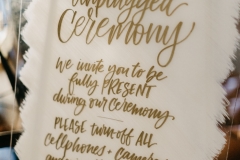 unplugged
Ceremony
We invite you to be
fully PRESENT
during our ceremony.
PLEASE turn off ALL
cellphones + cameras